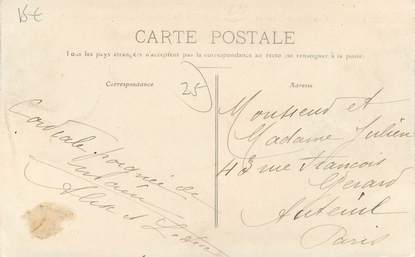 15€
CARTE POSTALE
Tous les pays étrangers n'acceptent pas la correspondance au recto (se renseigner à la poste).
Correspondance
Adresse
25
Cordiale poignée de
main
Monsieur et
Madame Julien
43 rue François
Gérard
Auteuil
Paris